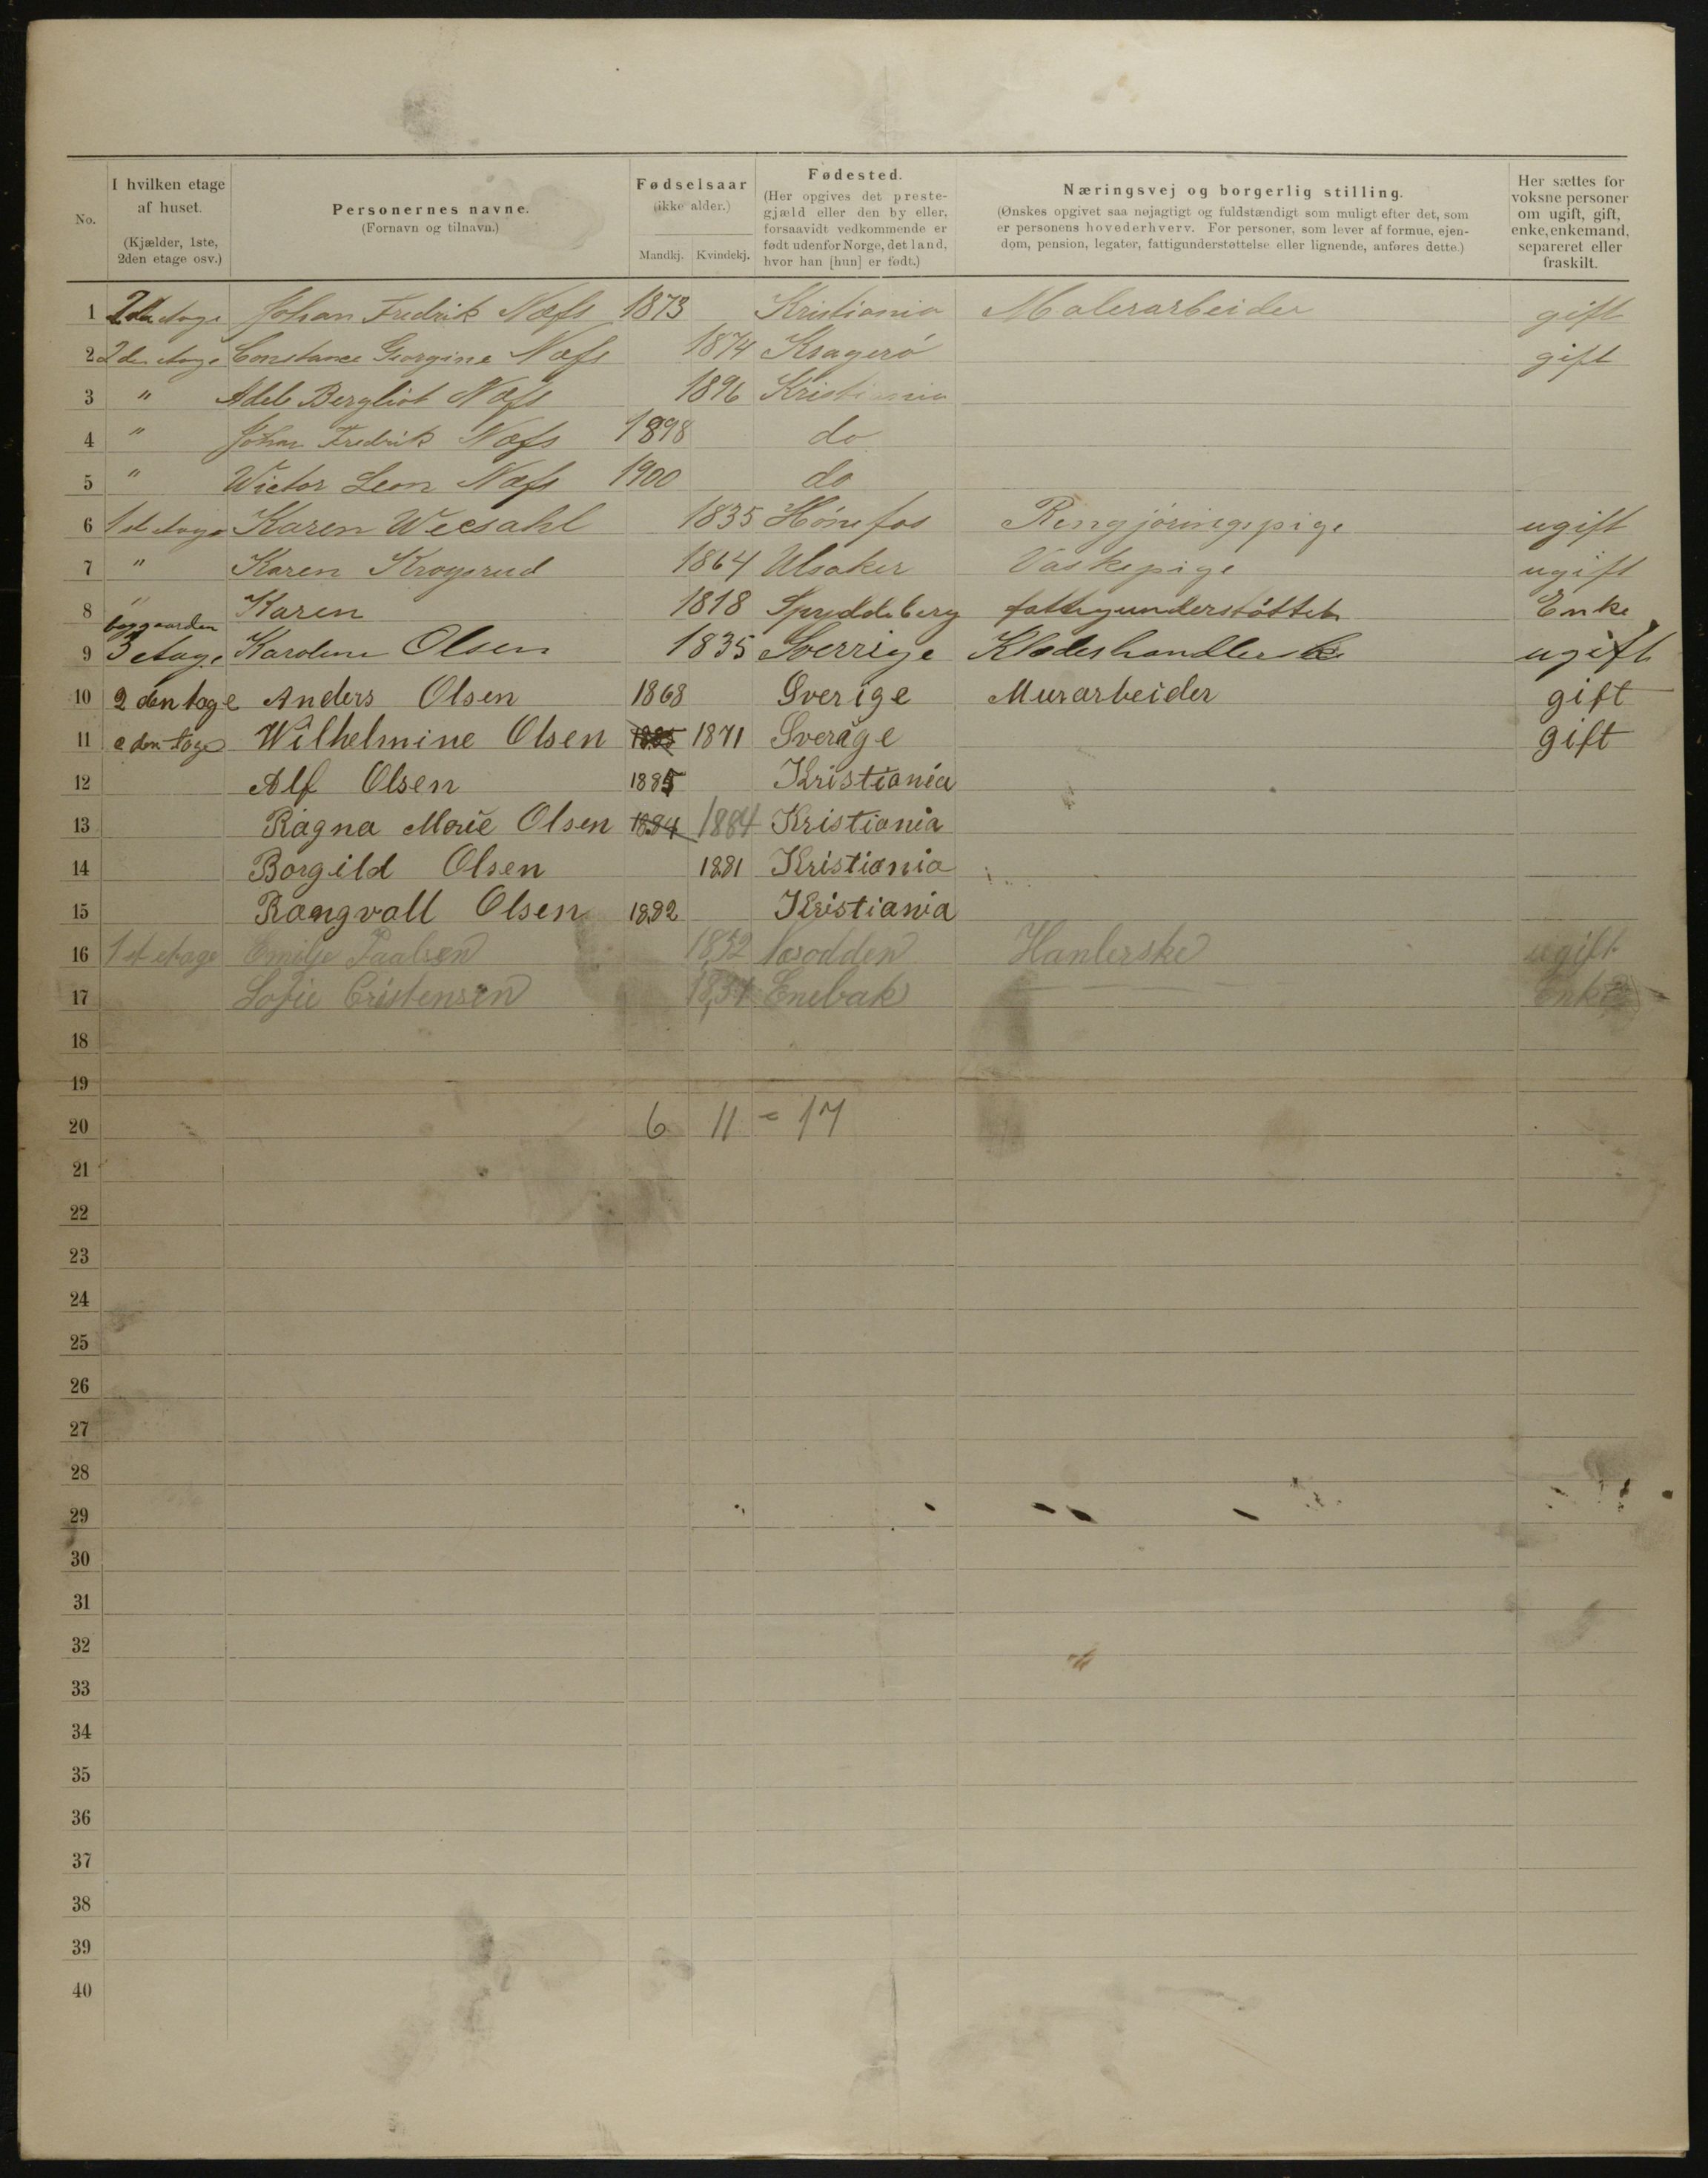 No.
I hvilken etage af huset. (Kjælder, 1ste, 2den etage osv.)
Personernes navne. (Fornavn og tilnavn.)
Fødselsaar (ikke alder.)
Mandkj. Kvindekj.
Fødested. (Her opgives det prestegjæld eller den by eller, forsaavidt vedkommende er født udenfor Norge, det land, hvor han [hun] er født.)
Næringsvej og borgerlig stilling. (Ønskes opgivet saa nøjagtigt og fuldstændigt som muligt efter det, som er personens hovederhverv. For personer, som lever af formue, ejendom, pension, legater, fattigunderstøttelse eller lignende, anføres dette.)
Her sættes for voksne personer om ugift, gift, enke, enkemand, separeret eller fraskilt.
1 2den etage Johan Fredrik Næss 1873 Kristiania Malerarbeider gift
2 2den etage Constance Georgine Næss 1874 Kragerö gift
3 " Adele Bergliot Næss 1896 Kristiania
4 " Johan Fredrik Næss 1898 do
5 " Wictor Leon Næss 1900 do
6 1st etage Karen 1835 Hönefos Rengjöringspige ugift
7 " Karen Krogsrud 1864 Ulsaker Vaskepige ugift
8 " Karen 1818 Spydeberg fattigunderstöttet Enke
baggaarden
9 3 etage Karoline Olsen 1835 Sverrige Klædeshandlerske ugift
10 2 den tage Anders Olsen 1868 Sverige Murarbeider gift
11 2 den tage Wilhelmine Olsen 1871 Sverige gift
12 Alf Olsen 1885 Kristiania
13 Ragna Marie Olsen 1884 1884 Kristiania
14 Borgild Olsen 1881 Kristiania
15 Rangvall Olsen 1892 Kristiania
16 1st etage Emilje Paalsen 1832 Næsodden Hanlerske ugift
17 Sofie Cristensen 1834 Enebak Enke
18
19
20 6 11 = 17
21
22
23
24
25
26
27
28
29
30
31
32
33
34
35
36
37
38
39
40